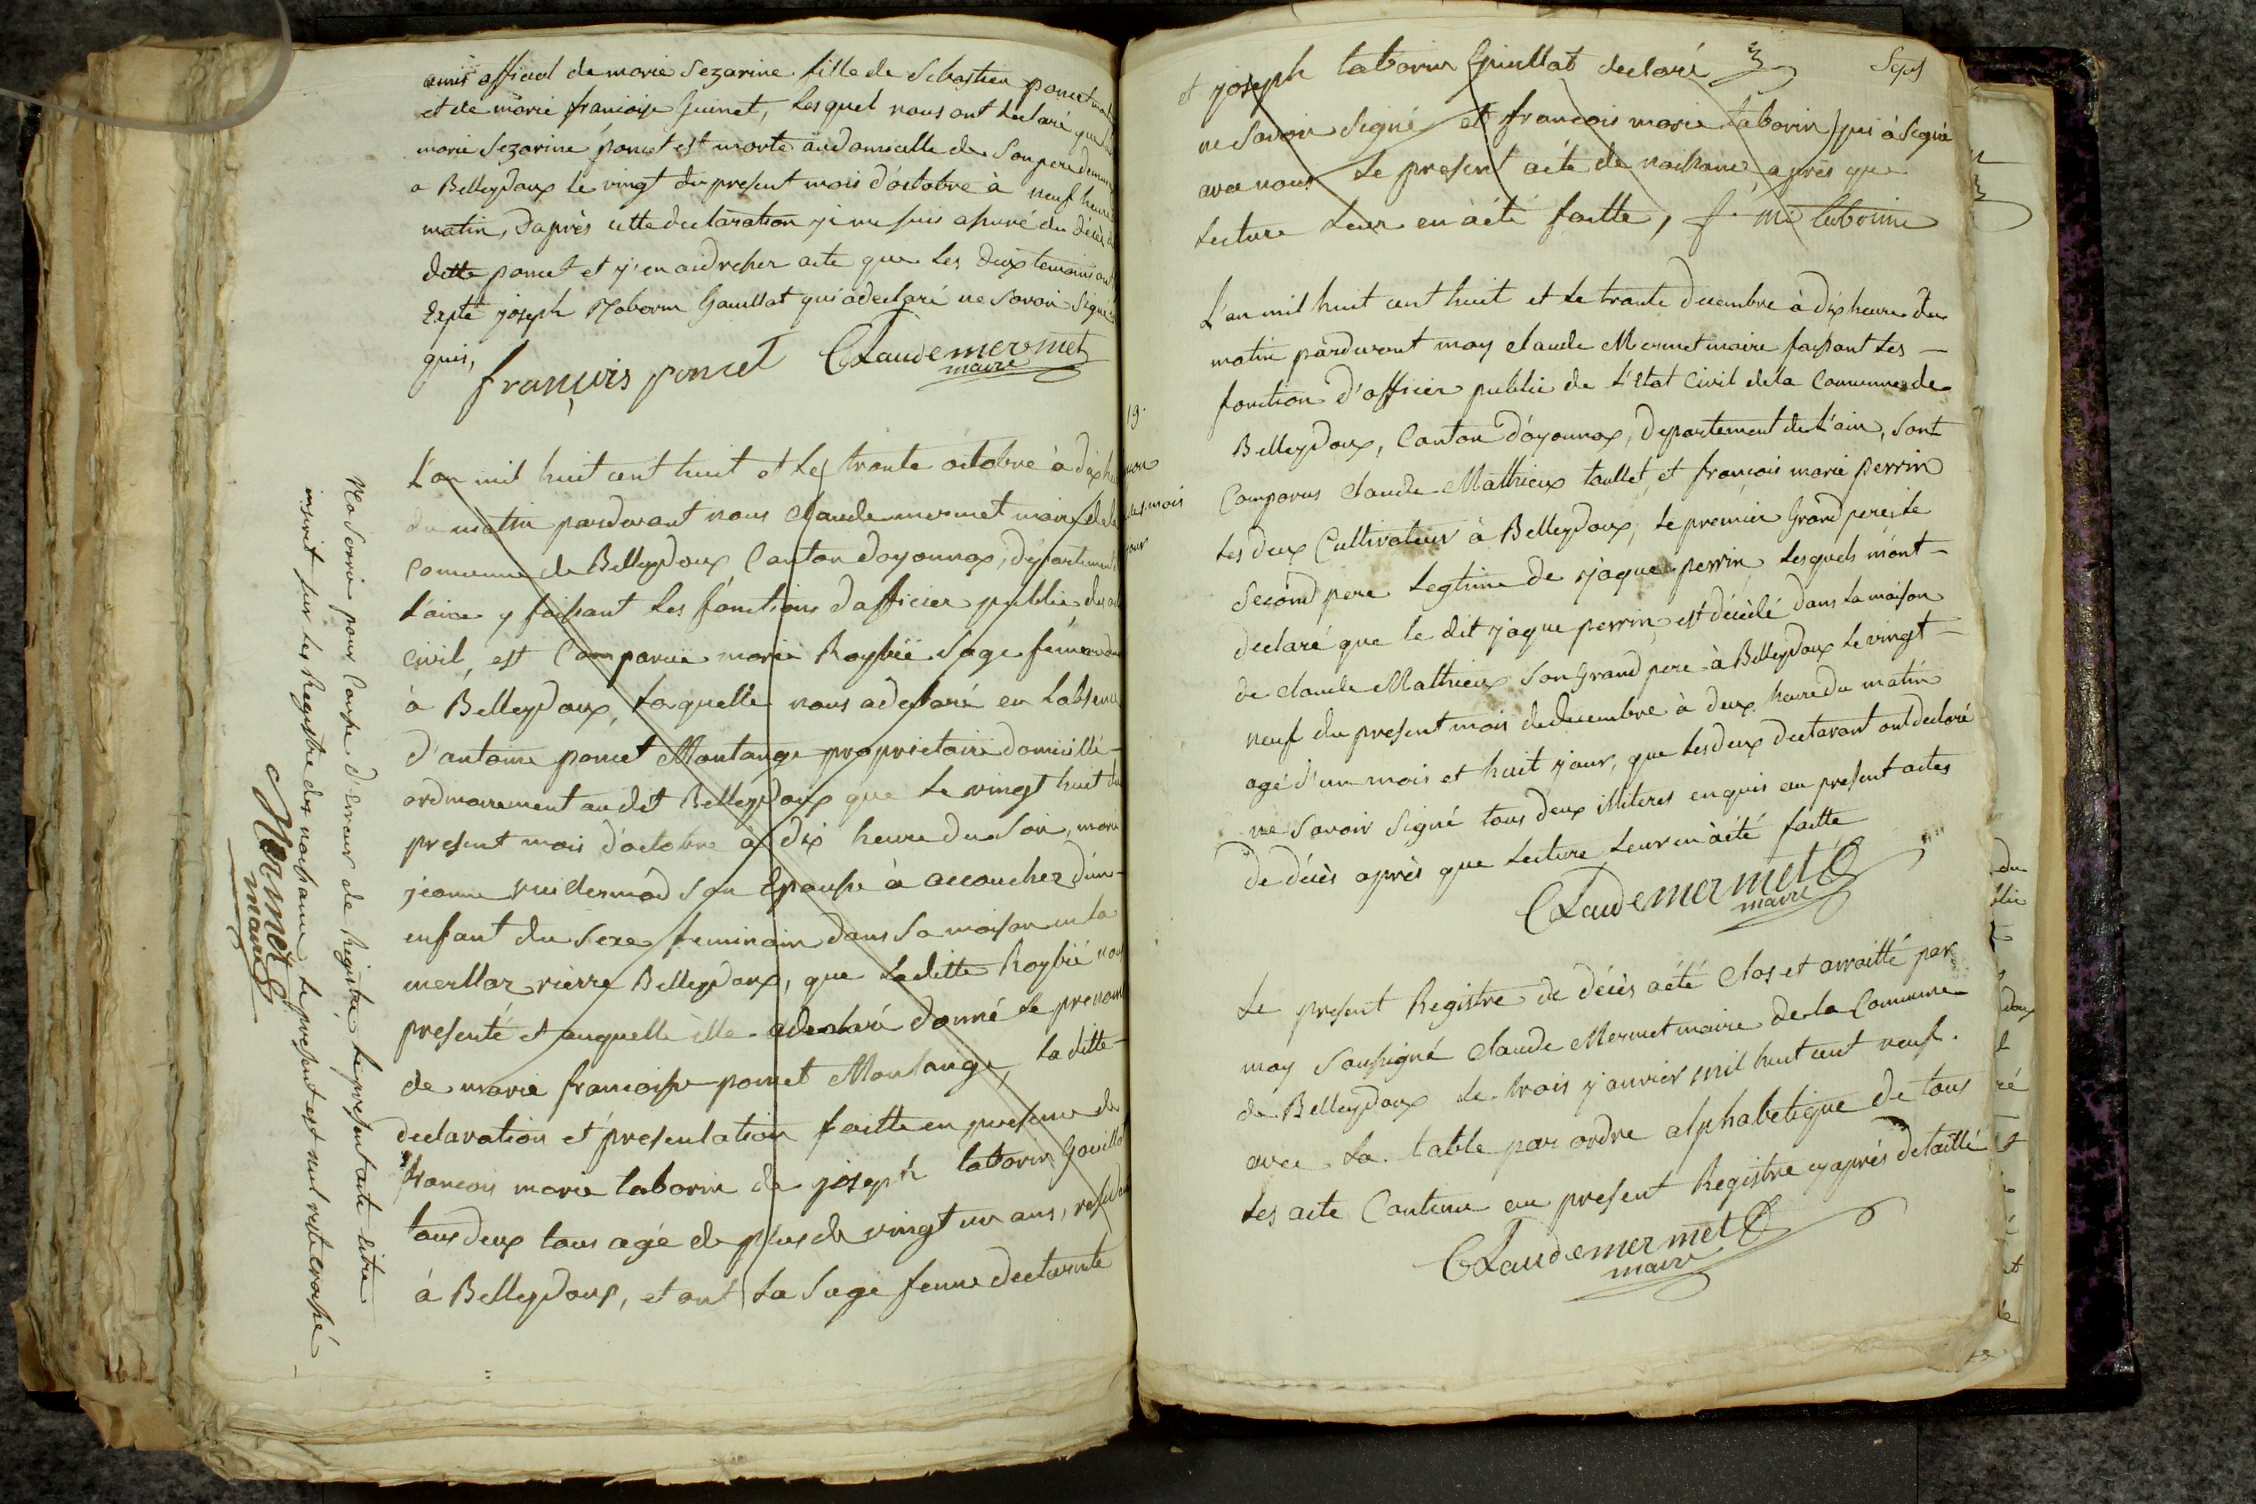 amis afficiel de marie Sezarine fille de Sebastien poncet
et de marie françoise Guinet, Lesquel nous ont declaré que
marie Sezarine poncet est morte au domicille de Son pere
a Belleydoux le vingt du present mois d'octobre à neuf heure
matin, d'après cette declaration je me suis assuré du décès
dette poncet et j'en ai drecher acte que les deux temoins ont
Exptè joseph Taborin Gauillat qui a declaré ne Savoir Signé
quis,
françois poncet Claude mermet
maire
L'an mil huit cent huit et Le trante octobre à dix
du matin pardevant nous Claude mermet maire de la
Commune de Belleydoux Canton doyonnax, departement
L'ain y faissant Les fonctions d'afficier public
Civil, est Comparüe marie Roybié Sage femme
à Belleydoux, Laquelle nous a declaré en Labsence
d'antoine poncet Montange proprietaire domicillié
ordinairement au dit Belleydoux que Le vingt huit du
present mois d'octobre à dix heure du Soir, marie
jeanne vuidermod Son Epouse à accouchez d'un
enfant du Sexe feminain dans Sa maison en la
merllaz rierre Belleydoux, que Laditte Roybié nous
presenté et auquelle elle a declaré donné Le prenom
de marie françoise poncet Montange, La ditte
declaration et presentation faitte en presence de
françois marie taborin de joseph taborin Gouillat
tous deux tous agé de plus de vingt un ans,
à Belleydoux, et ont La Sage femme declarante
Na Serrié pour Cause D'Erreur de Registre, Le present acte Estre
inscrit Sur Les Registre des naissance, Le present est nul reste croissé
Mermet
maire
19.
non
mois
jour
Sept
et joseph taborin Guillat declaré
ne Savoir Signé et françois marie taborin qui à Signé
avec nous Le present acte de naissance, après que
Lecture Leur en à été faitte, f. m. taborin
L'an mil huit cent huit et le trante decembre à dix heure du
matin pardevant moy claude Mermet maire faissant Les
fonction d'afficier public de L'Etat Civil de la Commune de
Belleydoux, Canton d'oyonnax, Departement de L'ain, Sont
Comparus claude Mathieux taullet et françois marie perrin
Les deux Cultivateur à Belleydoux, Le premier Grand pere, Le
Second pere Legtime de jaque perrin Lesquels m'ont
declaré que le dit jaque perrin est décédé dans La maison
de claude Mathieux Son Grand pere à Belleydoux Le vingt
neuf du present mois de decembre à deux heure du matin
agé d'un mois et huit jour, que Les deux declarant ont declaré
ne Savoir Signé tous deux illiteres enquis au present actes
de décès après que Lecture Leur en à été faitte
Claude mermet
maire
Le present Registre de décès a été Clos et arraitté par
moy Soussigné Claude Mermet maire de la Commune
de Belleydoux le trois janvier mil huit cent neuf.
avec La table par ordre alphabetique de tous
Les acte Contenu au present Registre cy après detaillé
Claude mermet
maire